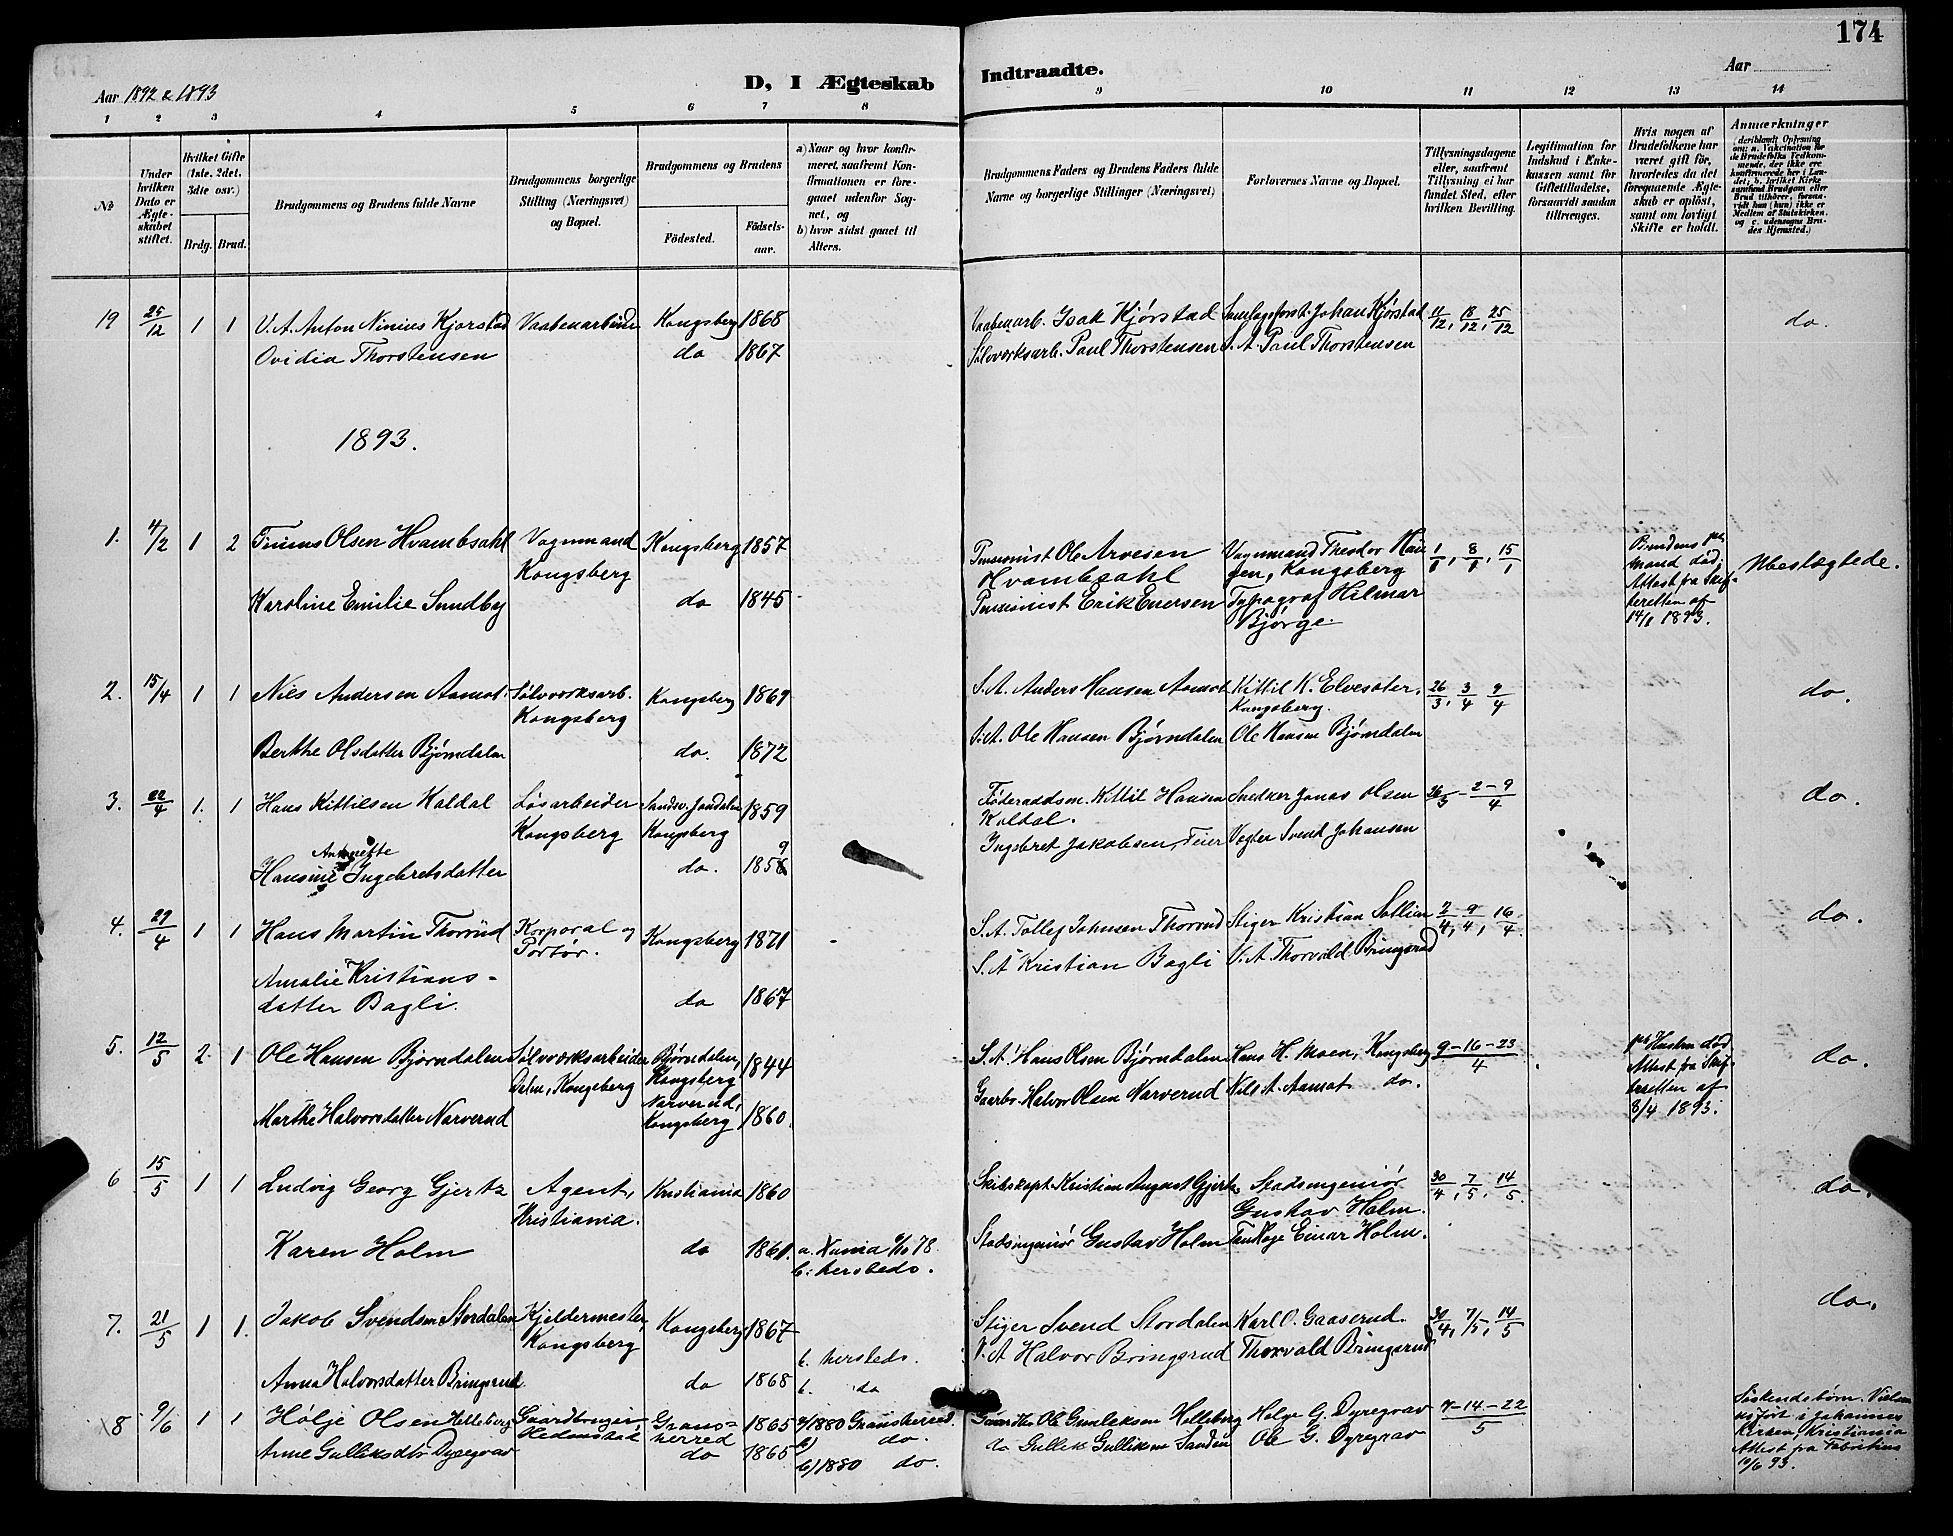 174
Aar 1892 & 1893
D, I Ægteskab
Indtraadte.
Aar
1 2 3 4 5 6 7 8
9 10 11 12 13 14
No
Under hvilken Dato er Ægteskabet stiftet.
Hvilket Gifte (1ste, 2det, 3die osv.)
Brdg. Brud.
Brudgommens og Brudens fulde Navne
Brudgommens borgerlige Stilling (Næringsvei) og Bopæl.
Brudgommens og Brudens
Födested.
Födselsaar.
a) Naar og hvor konfirmeret, saafremt Konfirmationen er foregaaet udenfor Sognet, og
b) hvor sidst gaaet til Alters.
Brudgommens Faders og Brudens Faders fulde Navne og borgerlige Stillinger (Næringsvei)
Forlovernes Navne og Bopæl.
Tillysningsdagene eller, saafremt Tillysning ei har fundet Sted, efter hvilken Bevilling.
Legitimation for Indskud i Enkekassen samt for Giftetilladelse, forsaavidt saadan tiltrænges.
Hvis nogen af Brudefolkene har været gift för, hvorledes da det foregaaende Ægteskab er oplöst, samt om lovligt Skifte er holdt.
Anmærkninger
19 25/12 1 1 V. A. Anton Ninius Kjørstad Vaabenarbeider Kongsberg 1868
Ovidia Thorstensen do 1867
Vaabenarb. Isak Kjørstad Johan Kjørstad 11/12, 18/12, 25/12 do.
Sølvverksarb. Paul Thorstensen S. A. Paul Thorstensen
1893.
1. 4/2 1 2 Olsen Hvambsahl Vognmand Kongsberg 1857
Kongsberg
Karoline Emilie Sundby do 1845
Pensionist Ole Arvesen Vognmand Theodor Hau 1/1, 8/1, 15/1
Hvambsahl gen, Kongsberg
Pensionist Erik Evensen Typograf Hilmar
Bjørge.
Brudens
mand død,
Attest fra Skif-
teretten af
14/1 1893.
Ubeslægtede.
2. 15/4 1 1 Nils Andersen Aamot Sølvverksarb. Kongsberg 1869
Kongsberg
Berthe Olsdatter Bjørndalen do. 1872
S. A. Anders Hansen Aamot Kittil K. Elvesæter, 26/3, 3/4 9/4 do.
Kongsberg.
S. A. Ole Hansen Bjørndalen Ole Hansen Bjørndalen
3. 22/4 1. 1 Hans Kittilsen Koldal Løsarbeider Sandsv. Jondalen 1859
Kongsberg Kongsberg
Antonette
Hansine Ingebretsdatter do. 1859
Føderaadsm. Kittil Hansen Snedker Jonas Olsen 26/3 - 2 - 9/4 do.
Koldal.
Ingebret Jakobsen, Feier Vægter Svend Johansen
4. 29/4 1 1 Hans Martin Thorrud Korporal og Kongsberg 1871
Portør.
Amalie Kristians-
datter Bagli. do 1867
S. A. Tollef Johnsen Thorrud Stiger Kristian 2/4, 9/4, 16/4. do.
S. A Kristian Bagli V. A. Thorvald Bringsrud
5. 12/5 2. 1 Ole Hansen Bjørndalen Sølvverksarbeider Bjørndalen, 1844
Kongeberg Kongsberg
Narverud,
Marthe Halvorsdatter Narverud Kongsberg 1860.
S. A. Hans Olsen Bjørndalen Hans H. Moen, Kongsberg 9 - 16 - 23/4
Gaarbr. Halvor Olsen Narverud Nils A. Aamot do.
Hustru død
Attest fra Skif-
teretten af
8/4 1893.
do.
6 15/5 1 1 Ludvig Georg Gjertz Agent, Kristiania 1860
Kristiania.
Karen Holm do 1861. a. Xania 78.
b: hersteds.
Skibskapt. Kristian August Gjertz Stadsingeniør 30/4, 7/5, 14/5 do.
Gustav Holm.
Stadsingeniør Gustav Holm Einar Holm.
7. 21/5 1 1. Jakob Svendsen Stordalen Kjeldermester, Kongsberg 1867
Kongsberg b. hersteds.
Anna Halvorsdatter Bringsrud do 1868 b. do
Stiger Svend Stordalen Karl O. Gaaserud. 30/4, 7/5, 14/5 do.
V. A Halvor Bringsrud Thorvald Bringsrud
8 9/6 1 1 Hølje Olsen Helleberg Gaardbruger Grans- 1865 1880 Gransherred.
Hedenstad herred b) do.
Anne Gulliksdtr Dyregrav do 1865 b) 1880 do.
Gaardbr. Ole Gunleksen Helleberg Helge G. Dyregrav 7 - 14 - 22/5
do Gullik Gulliksen Sanden Ole G. Dyregrav
Søskendebørn. Vielsen
udført i Johannes
Kirken, Kristiania
Attest fra Fabritius
10/6 93.